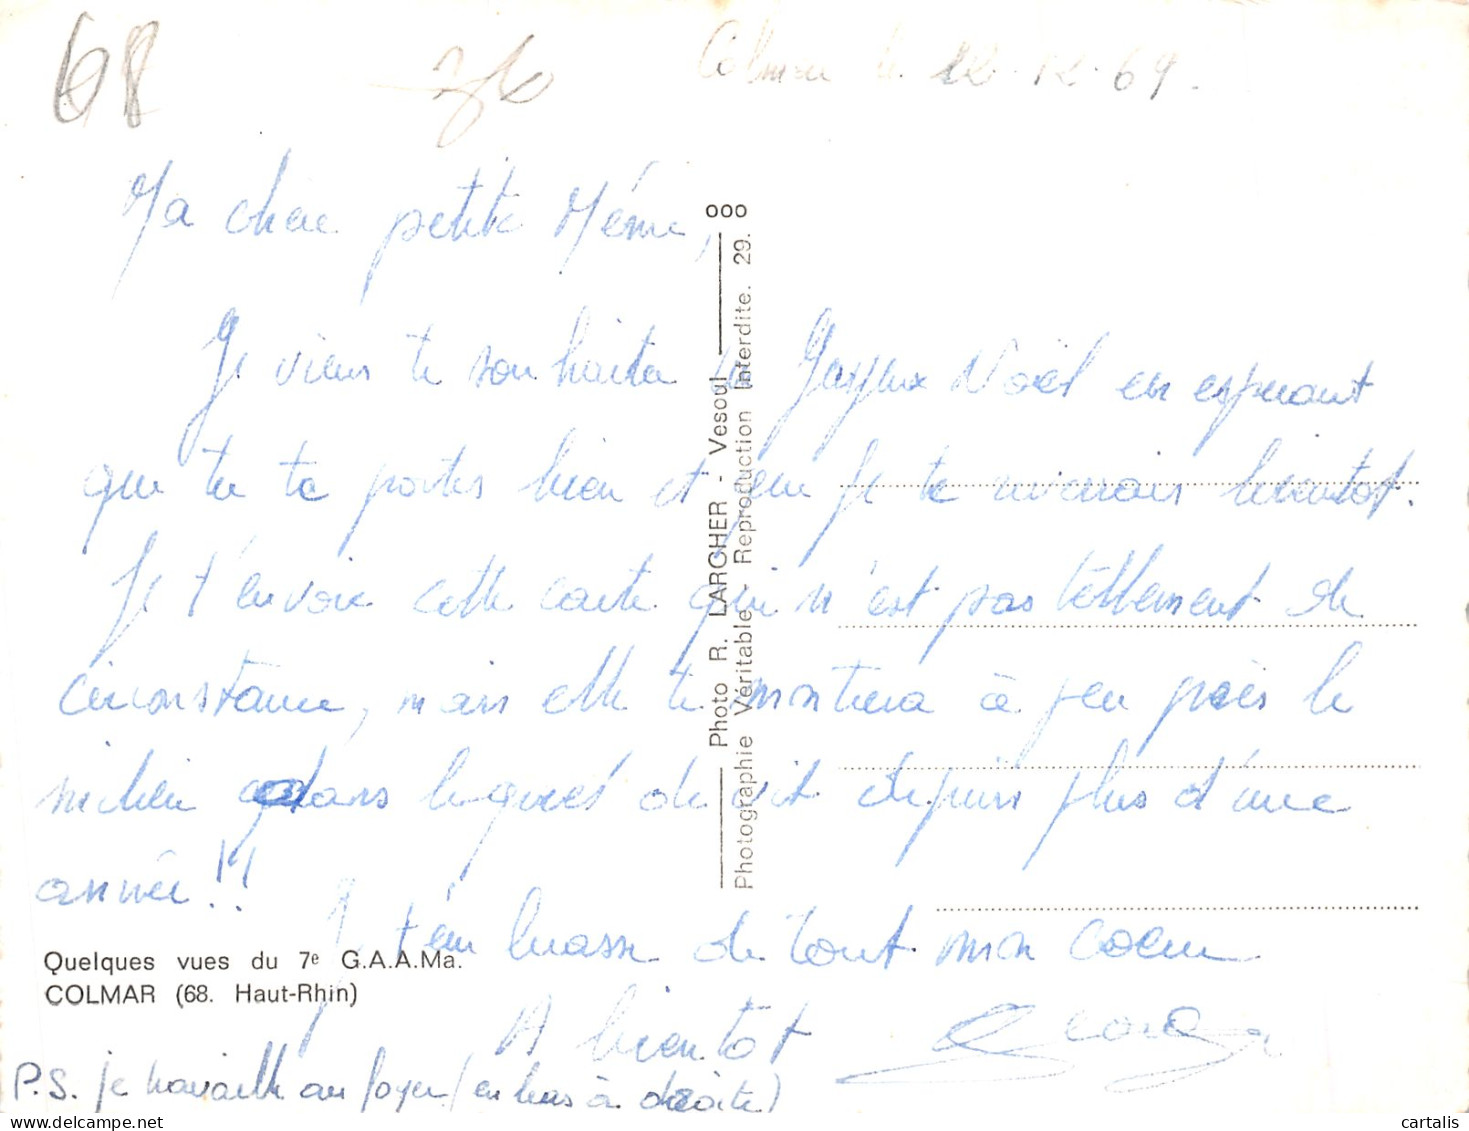 68
36
Colmar le 22.12.69.
Ma chère petite Mémé,
Je viens te souhaiter un Joyeux Noël en espérant
que tu te portes bien et que je te reverrais bientot.
Je t'envoie cette carte qui n'est pas tellement de
circonstance, mais elle te montrera à peu près le
milieu dans lequel je vit depuis plus d'une
année !!
Je t'embrasse de tout mon coeur
A bientot
P.S. je travaille au foyer (en bas à droite)
Quelques vues du 7e G.A.A.Ma.
COLMAR (68. Haut-Rhin)
Photo R. LARCHER - Vesoul
Photographie Véritable - Reproduction Interdite. 29.
ooo
cartalis